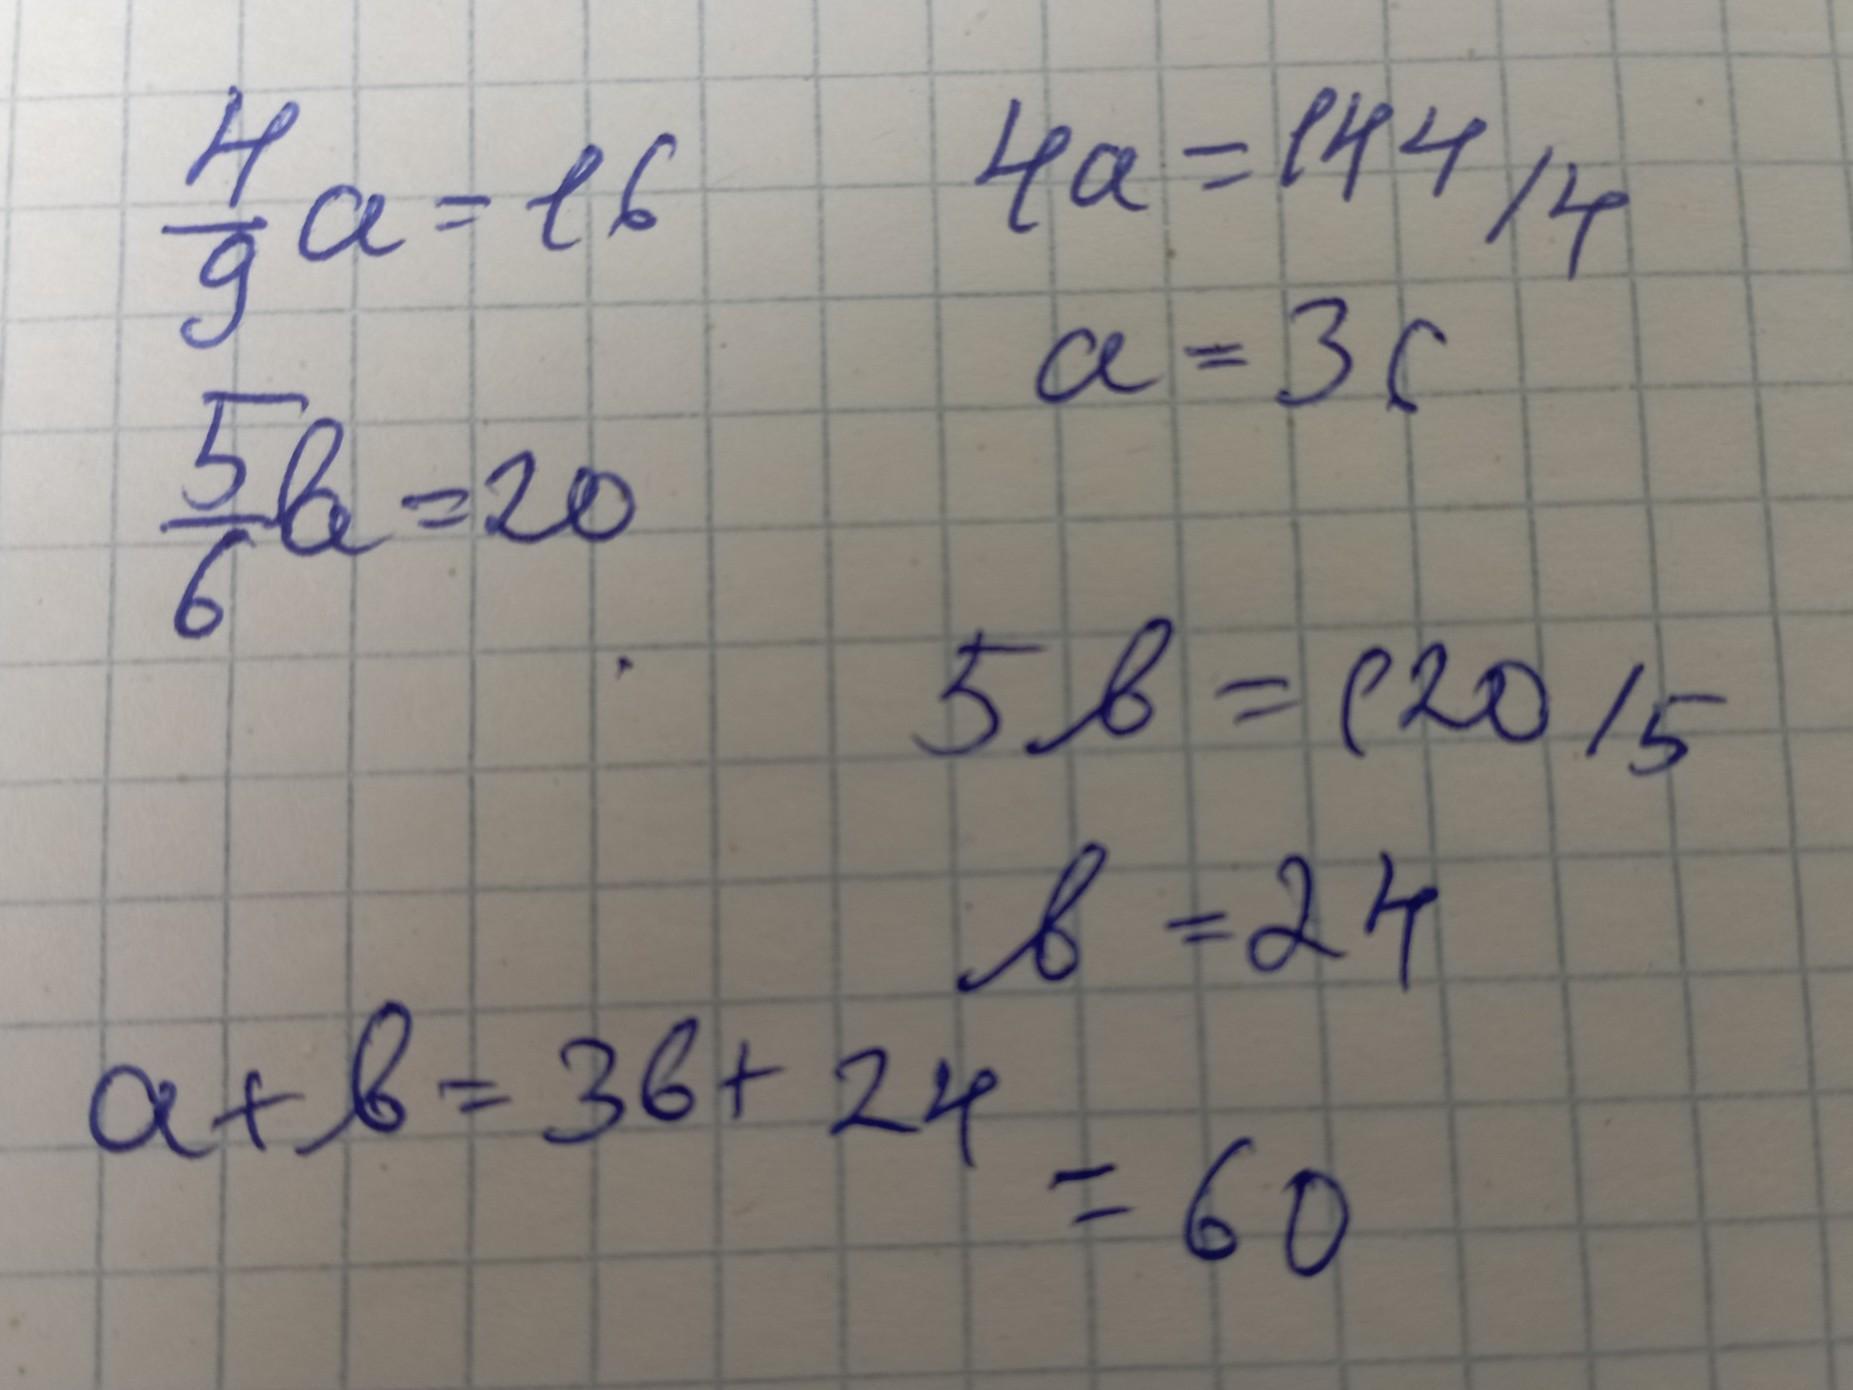 4/9 a = 16
4a = 144 /4
a = 36
5/6 b = 20
5b = 120 /5
b = 24
a + b = 36 + 24
= 60